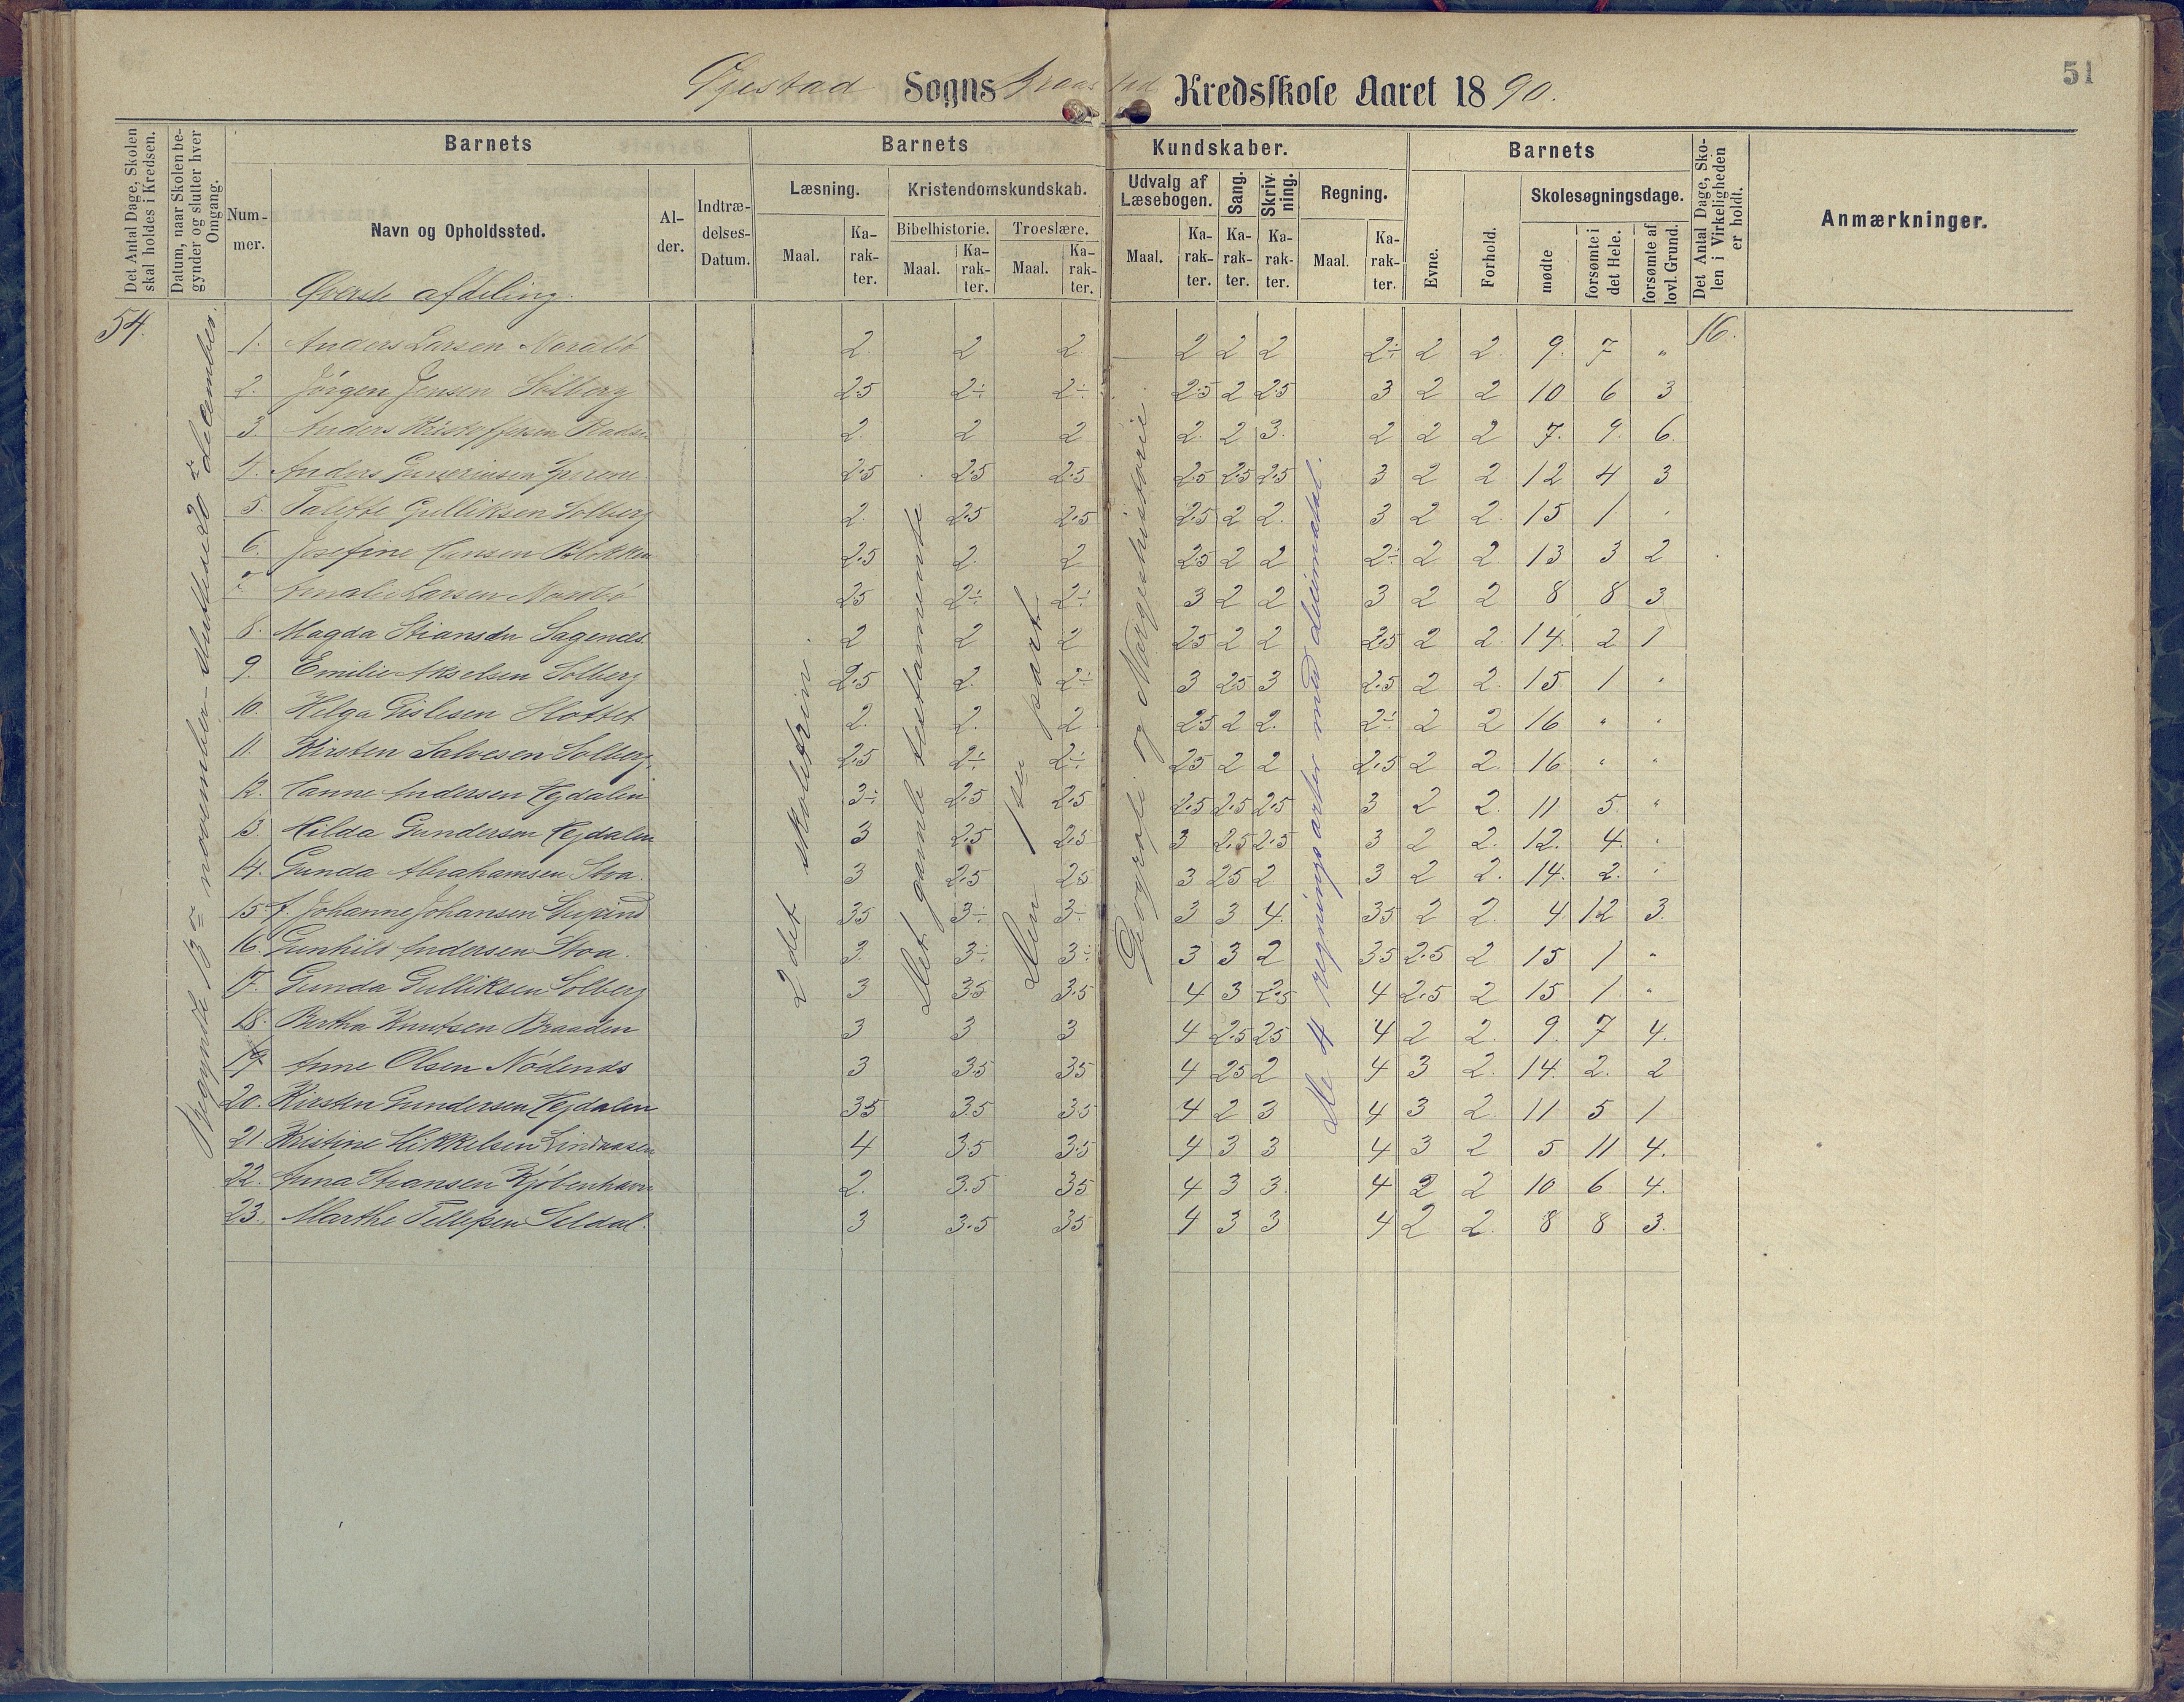 51
Øjestad Sogns Braastad Kredsskole Aaret 1890.
Det Antal Dage, Skolen skal holdes i Kredsen.
Datum, naar Skolen begynder og slutter hver Omgang.
Barnets
Nummer.
Navn og Opholdssted.
Alder.
Indtrædelses-Datum.
Barnets Kundskaber.
Læsning. Maal. Karakter.
Kristendomskundskab.
Bibelhistorie. Maal. Karakter.
Troeslære. Maal. Karakter.
Udvalg af Læsebogen. Maal. Karakter.
Sang. Karakter.
Skrivning. Karakter.
Regning. Maal. Karakter.
Barnets
Evne.
Forhold.
Skolesøgningsdage.
mødte
forsømte i det Hele.
forsømte af lovl. Grund.
Det Antal Dage, Skolen i Virkeligheden er holdt.
Anmærkninger.
Øverste afdeling.
54.
Begyndte 13de november. Sluttede 20de december.
2det skoletrin.
Det gamle testamente
Den 1ste part.
Geografi og Norgeshistorie.
De 4 regningsarter med decimaltal.
16.
1. Anders Larsen 2. 2 2 2 2 2 2÷ 2 2. 9. 7 „
2. Jørgen Jensen Solberg 2.5 2÷ 2÷ 2.5 2 2.5 3 2 2 10 6 3
3. Anders Kristoffersen 2. 2 2 2. 2 3. 2 2 2 7. 9. 6.
4. Anders 2.5 2.5 2.5 2.5 2.5 2.5 3 2 2 12 4 3
5. Talette Gulliksen Solberg 2. 2.5 2.5 2.5 2 2. 3 2 2. 15 1 „
6. Josefine Hansen Blokken 2.5 2. 2 2.5 2 2 2÷ 2 2 13 3 2
7. Amalie Larsen 2.5 2÷ 2÷ 3 2 2 3 2 2 8 8 3
8. Magda Stiansen Sagenes 2 2 2 2.5 2 2 2.5 2 2. 14. 2 1
9. Emilie Akselsen Solberg 2.5 2. 2÷ 3 2.5 3 2.5 2 2. 15 1 „
10. Helga Gislesen Slottet 2. 2. 2 2.5 2 2. 2÷ 2 2 16 „ „
11. Kirsten Salvesen Solberg. 2.5 2÷ 2÷ 2.5 2 2 2.5 2 2. 16 „ „
12. Hanne Andersen Hejdalen 3÷ 2.5 2.5 2.5 2.5 2.5 3 2 2. 11 5. „
13. Hilda Gundersen Hejdalen 3 2.5 2.5 3 2.5 2.5 3 2 2. 12. 4. „
14. Gunda Abrahamsen Stoa. 3 2.5 2.5 3 2.5 2 3 2 2. 14. 2. „
15 f. Johanne Johansen 3.5 3÷ 3÷ 3 3 4. 3.5 2 2. 4. 12 3.
16. Gunhild Andersen Stoa. 3. 3÷ 3÷ 3 3 2 3.5 2.5 2 15 1 „
17. Gunda Gulliksen Solberg 3 3.5 3.5 4 3 2.5 4 2.5 2 15 1. „
18. Bertha Knutsen Braaden 3 3 3 4 2.5 2.5 4 2 2. 9. 7 4.
19 Anne Olsen Nödenes 3 3.5 3.5 4 2.5 2 4 3 2. 14. 2. 2
20. Kirsten Gundersen Hejdalen 3.5 3.5 3.5 4 2 3 4 3 2. 11 5 1
21 Kristine Mikkelsen Lindaasen 4 3.5 3.5 4 3 3 4 3 2 5 11 4.
22. Anna Stiansen Kjøbenhavn 2. 3.5 3.5 4 3 3. 4 2 2 10 6 4.
23. Marthe Tellefsen Seldal. 3 3.5 3.5 4 3 3 4 2 2. 8 8 3.